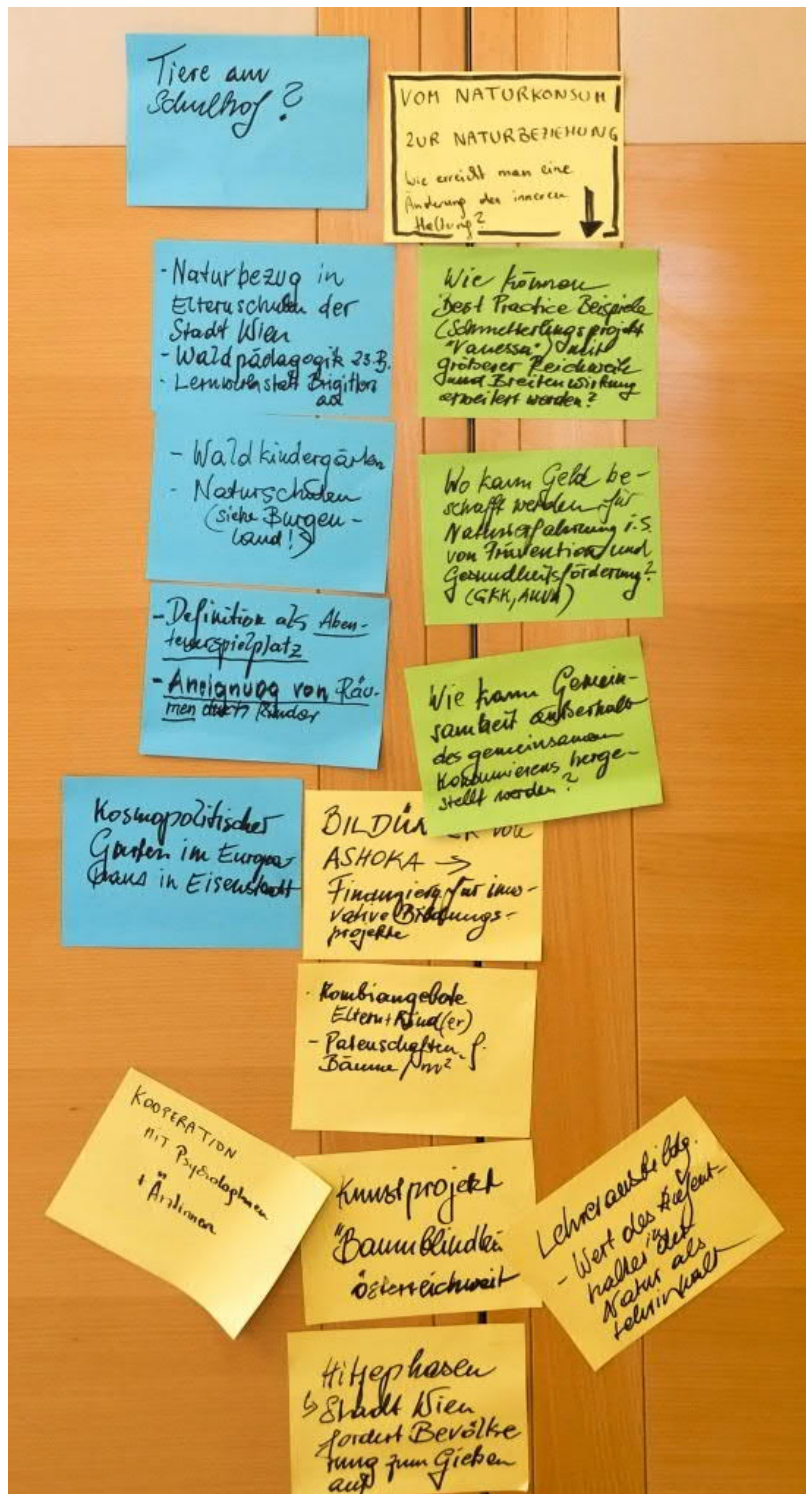 Tiere am
Schulhof?
VOM NATURKONSUM
ZUR NATURBEZIEHUNG
Wie erreicht man eine
Änderung der inneren
Haltung?
- Naturbezug in
Elternschulen der
Stadt Wien
- Waldpädagogik 23.B.
- Lernwerkstatt Brigitten
au
Wie können
Best Practice Beispiele
(Schmetterlingsprojekt
"Vanessa") mit
größerer Reichweite
und Breitenwirkung
erweitert werden?
- Waldkindergärten
- Naturschulen
(siehe Burgen-
land!)
Wo kann Geld be-
schafft werden für
Naturerfahrung i.S.
von Prävention und
Gesundheitsförderung?
(GKK, AUVA)
- Definition als Aben-
teuerspielplatz
- Aneignung von Räu-
men durch Kinder
Wie kann Gemein-
samkeit außerhalb
des gemeinsamen
Konsumierens herge-
stellt werden?
Kosmopolitischer
Garten im Europa
haus in Eisenstadt
BILDÜN ER von
ASHOKA →
Finanzierg für inno-
vative Bildungs-
projekte
- Kombiangebote
Eltern + Kind(er)
- Patenschaften f.
Bäume / m²
KOOPERATION
MIT Psychologinnen
+ Ärztinnen
Kunstprojekt
"Baumblindheit
österreichweit
Lehrerausbildg.
- Wert des Aufent-
haltes in der
Natur als
Lehrinhalt
Hitzephasen
↳ Stadt Wien
fordert Bevölke
rung zum Gießen
auf